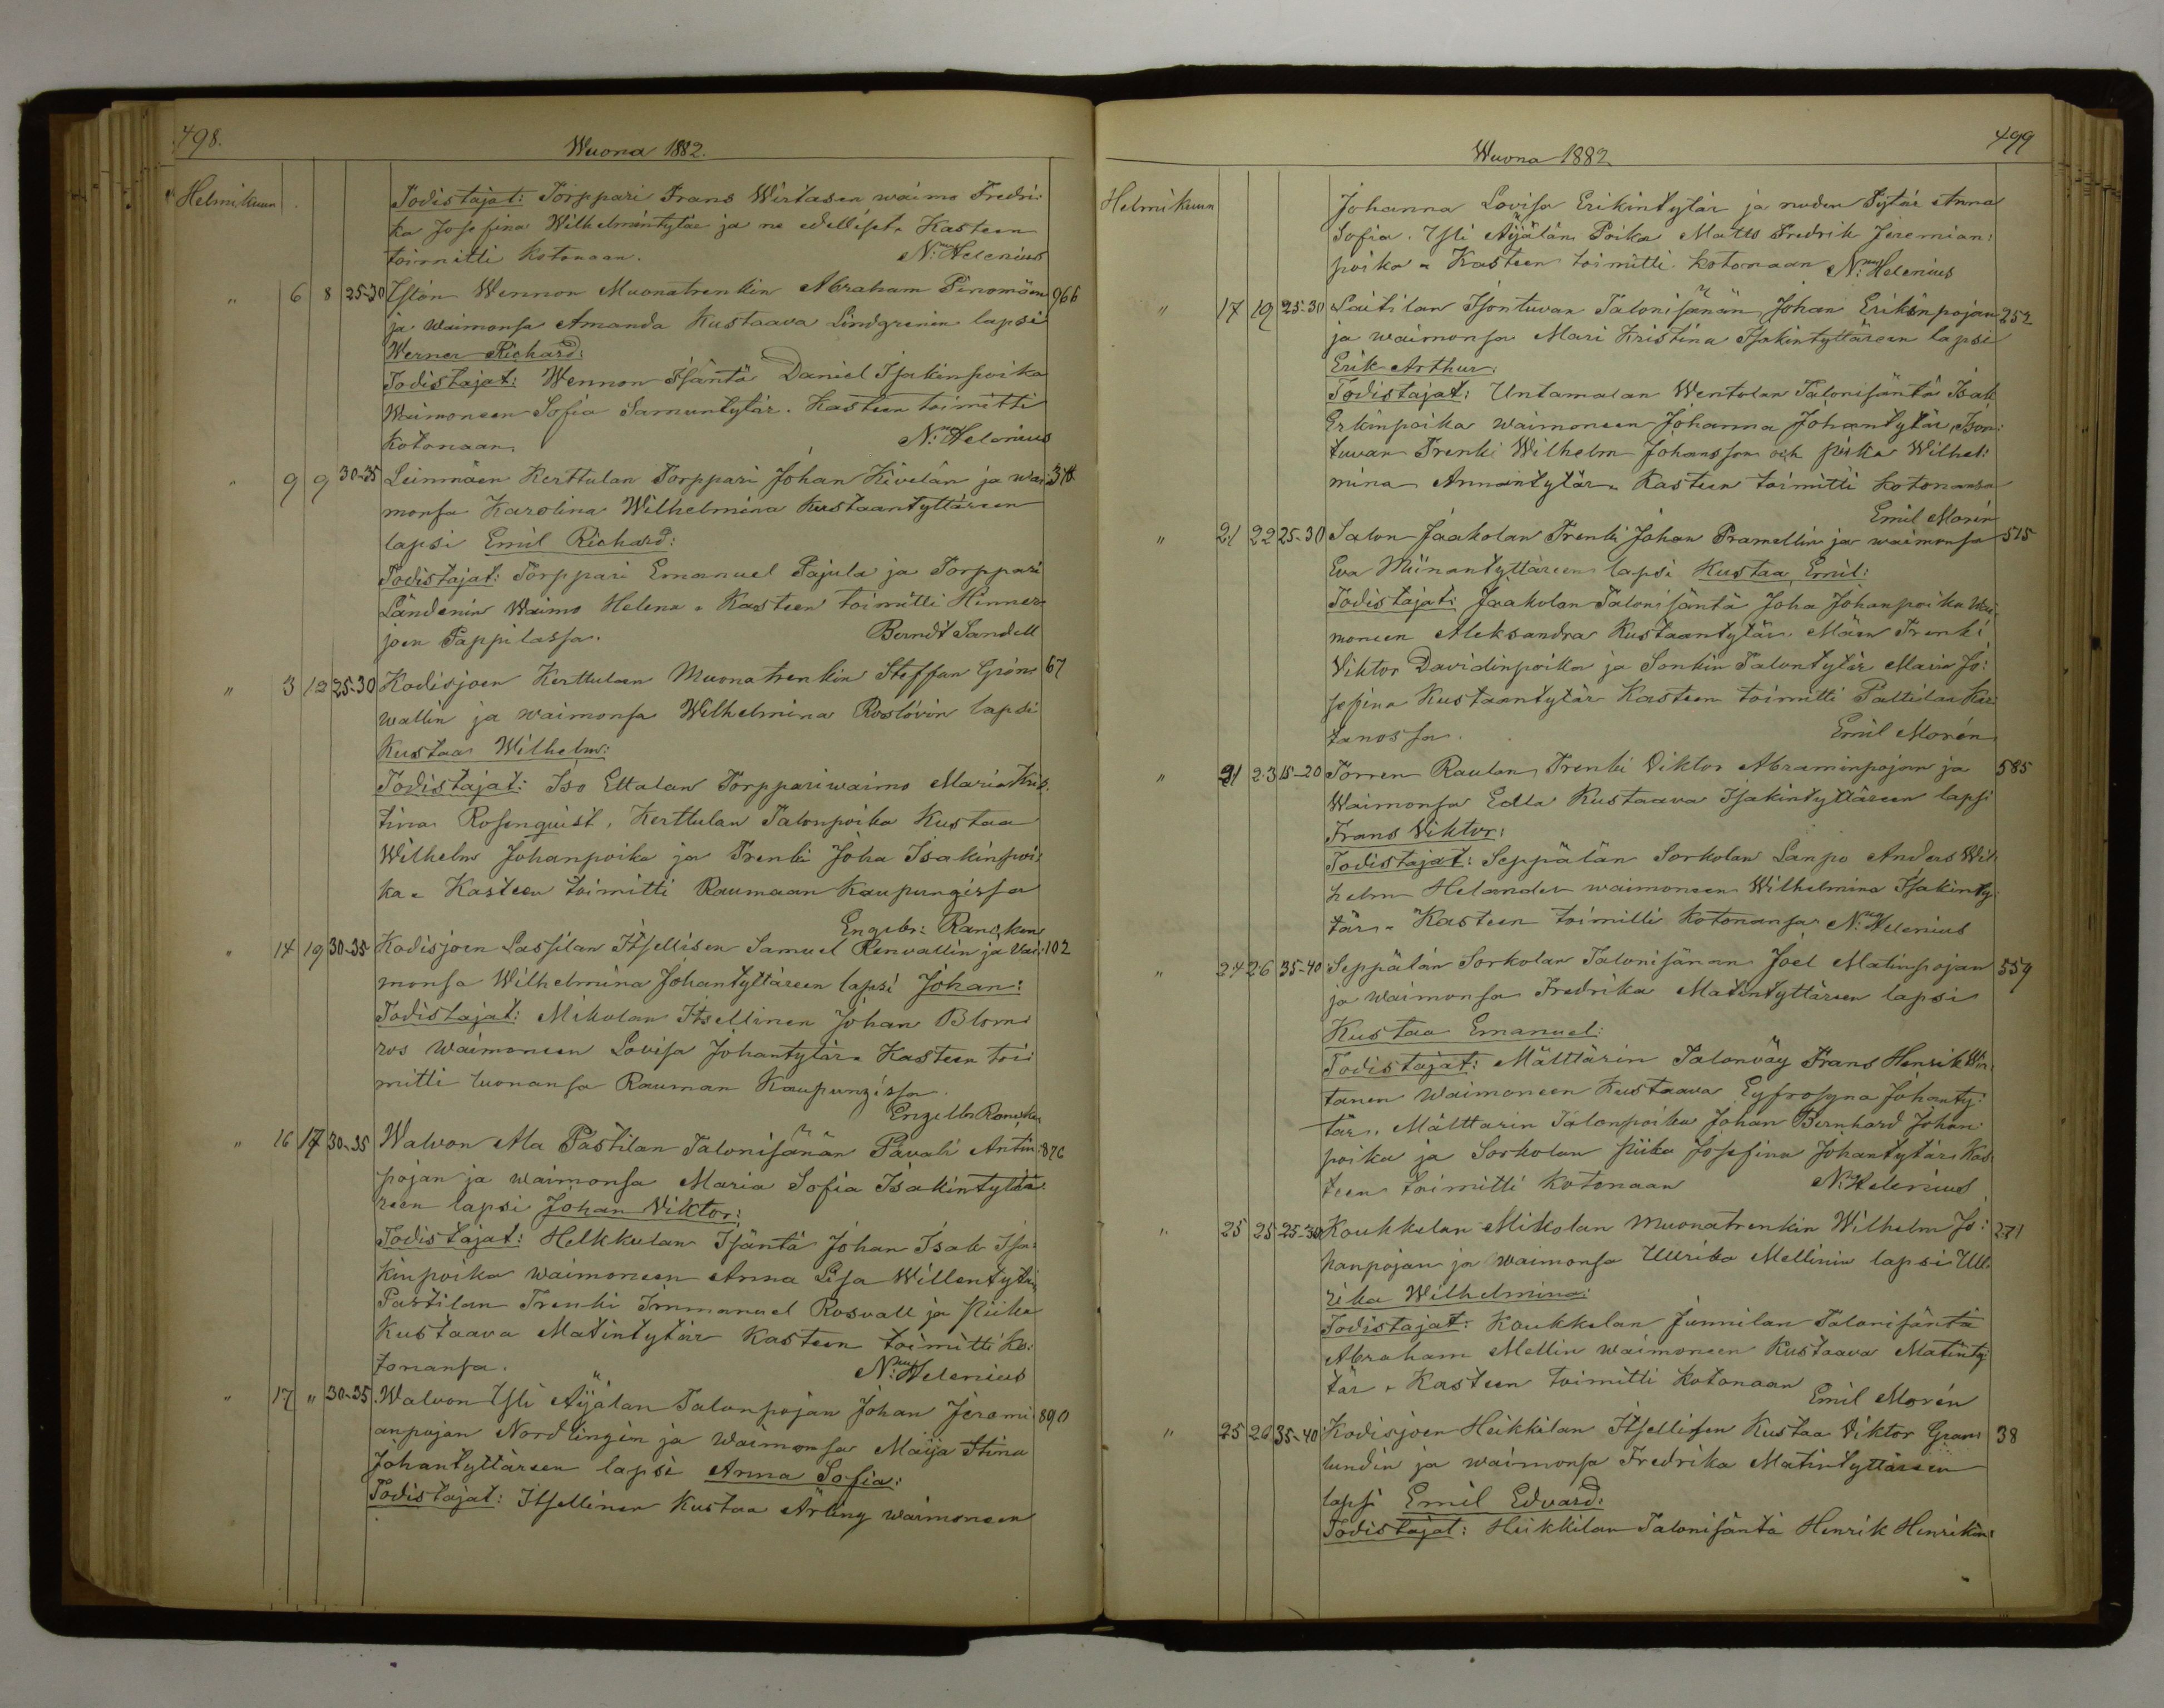 498.
Wuona 1882.
Helmikuun
Todistajat: Torppari Frans Wirtasen waimo Fredri:
ka Josefina Wilhelmintytär ja ne edelliset. Kasteen
toimitti kotonaan. N: Helenius
" 6 8 25-30 Ylön Wennon Muonatrenkin Abraham Pinomäen 966
ja waimonsa Amanda Kustaava Lindgrenin lapsi
Werner Richard:
Todistajat: Wennon Isäntä Daniel Isakinpoika
Waimoneen Sofia Samuntytär. Kasteen toimitti
kotonaan. N: Helenius
" 9 9 30-35 Leinmäen Kerttulan Torppari Johan Kivelän ja wai:
monsa Karolina Wilhelmina Kustaantyttäreen
lapsi Emil Richard:
Todistajat: Torppari Emanuel Pajula ja Torppari
Ländenin Waimo Helena. Kasteen toimitti Hinner:
joen Pappilassa. Berndt Sandell
" 3 12 25-30 Kodisjoen Kerttulan Muonatrenkin Steffan Grön: 67
wallin ja waimonsa Wilhelmina Roslövin lapsi
Kustaa Wilhelm:
Todistajat: Iso Ettalan Torppariwaimo Maria Kris:
tina Rosenquist, Kerttulan Talonpoika Kustaa
Wilhelm Johanpoika ja Trenki Joha Isakinpoi:
ka. Kasteen toimitti Raumaan Kaupungissa
Engelbr: Ranck
" 14 19 30-35 Kodisjoen Lassilan Itsellisen Samuel Renvallin ja Vai: 102
monsa Wilhelmina Johantyttäreen lapsi Johan:
Todistajat: Mikolan Itsellinen Johan Blom:
ros waimoneen Lovisa Johantytär. Kasteen toi:
mitti luonansa Rauman Kaupungissa.
" 16 17 30-35 Walvon Ala Pastilan Talonisänän Pavali Antin: 876
pojan ja waimonsa Maria Sofia Isakintyttä:
reen lapsi Johan Viktor:
Todistajat: Helkkulan Isäntä Johan Isak Isa:
kinpoika waimoneen Anna Lisa Willentytär,
Pastilan Trenki Immanuel Rosvall ja Piika
Kustaava Matintytär Kasteen toimitti ko:
tonansa. N: Helenius
" 17 " 30-35 Walvon Yli Äijälan Talonpojan Johan Jeremi: 890
anpojan Nordlingin ja Waimonsa Maija Stina
Johantyttäreen lapsi Anna Sofia:
Todistajat: Itsellinen Kustaa Ärling waimoneen
499
Wuona 1882
Helmikuun
Johanna Lovisa Erikintytär ja neden Tytär Anna
Sofia. Yli Äijälän Poika Matts Fredrik Jeremian:
poika. Kasteen toimitti kotonaan N: Helenius
" 17 19 25-30 Laitilan Isontuvan Talonisänän Johan Erikinpojan 252
ja waimonsa Mari Kristina Isakintyttäreen lapsi
Erik Arthur:
Todistajat: Untamalan Wentolan Talonisäntä Isak
Erkinpoika waimoneen Johanna Johantytär, Ison:
tuvan Trenki Wilhelm Johansson och piika Wilhel:
mina Annantytär. Kasteen toimitti kotonansa
Emil Morén
" 21 22 25-30 Salon Jaakolan Trenki Johan Pramellin ja waimonsa 515
Eva Miinantyttäreen lapsi Kustaa Emil:
Todistajat: Jaakolan Talonisäntä Joha Johanpoika Wai:
moneen Aleksandra Kustaantytär. Mäen Trenki
Viktor Davidinpoika ja Sonkin Talontytär Maria Jo:
sefina Kustaantytär Kasteen toimitti Paltilan Kar:
tanossa. Emil Morén
" 21 23 15-20 Torren Raulan Trenki Viktor Abraminpojan ja 585
Waimonsa Edla Kustaava Isakintyttäreen lapsi
Frans Viktor:
Todistajat: Seppälän Sorkolan Lanpo Anders Wil:
helm Helander waimoneen Wilhelmina Isakinty:
tär. Kasteen toimitti kotonansa N: Helenius
" 24 26 35-40 Seppälän Sorkolan Talonisänän Joel Matinpojan 559
ja waimonsa Fredrika Matintyttäreen lapsi
Kustaa Emanuel:
Todistajat: Mälttärin Talonväy Frans Henrik Wir:
tanen Waimoneen Kustaava Eyfrosyna Johanty:
tär. Mälttarin Talonpoika Johan Bernhard Johan:
poika ja Sorkolan piika Josefina Johantytär. Kas:
teen toimitti kotonaan N: Helenius
" 25 25 25-30 Koukkelan Mikolan Muonatrenkin Wilhelm Jo: 271
hanpojan ja waimonsa Ullrika Mellinin lapsi Ull:
rika Wilhelmina:
Todistajat: Koukkelan Junnilan Talonisäntä
Abraham Mellin waimoneen Kustaava Matinty:
tär. Kasteen toimitti kotonaan Emil Morén
" 25 26 35-40 Kodisjoen Heikkilan Itsellisen Kustaa Viktor Gran: 38
lundin ja waimonsa Fredrika Matintyttäreen
lapsi Emil Edvard:
Todistajat: Heikkilan Talonisäntä Henrik Henrikin: